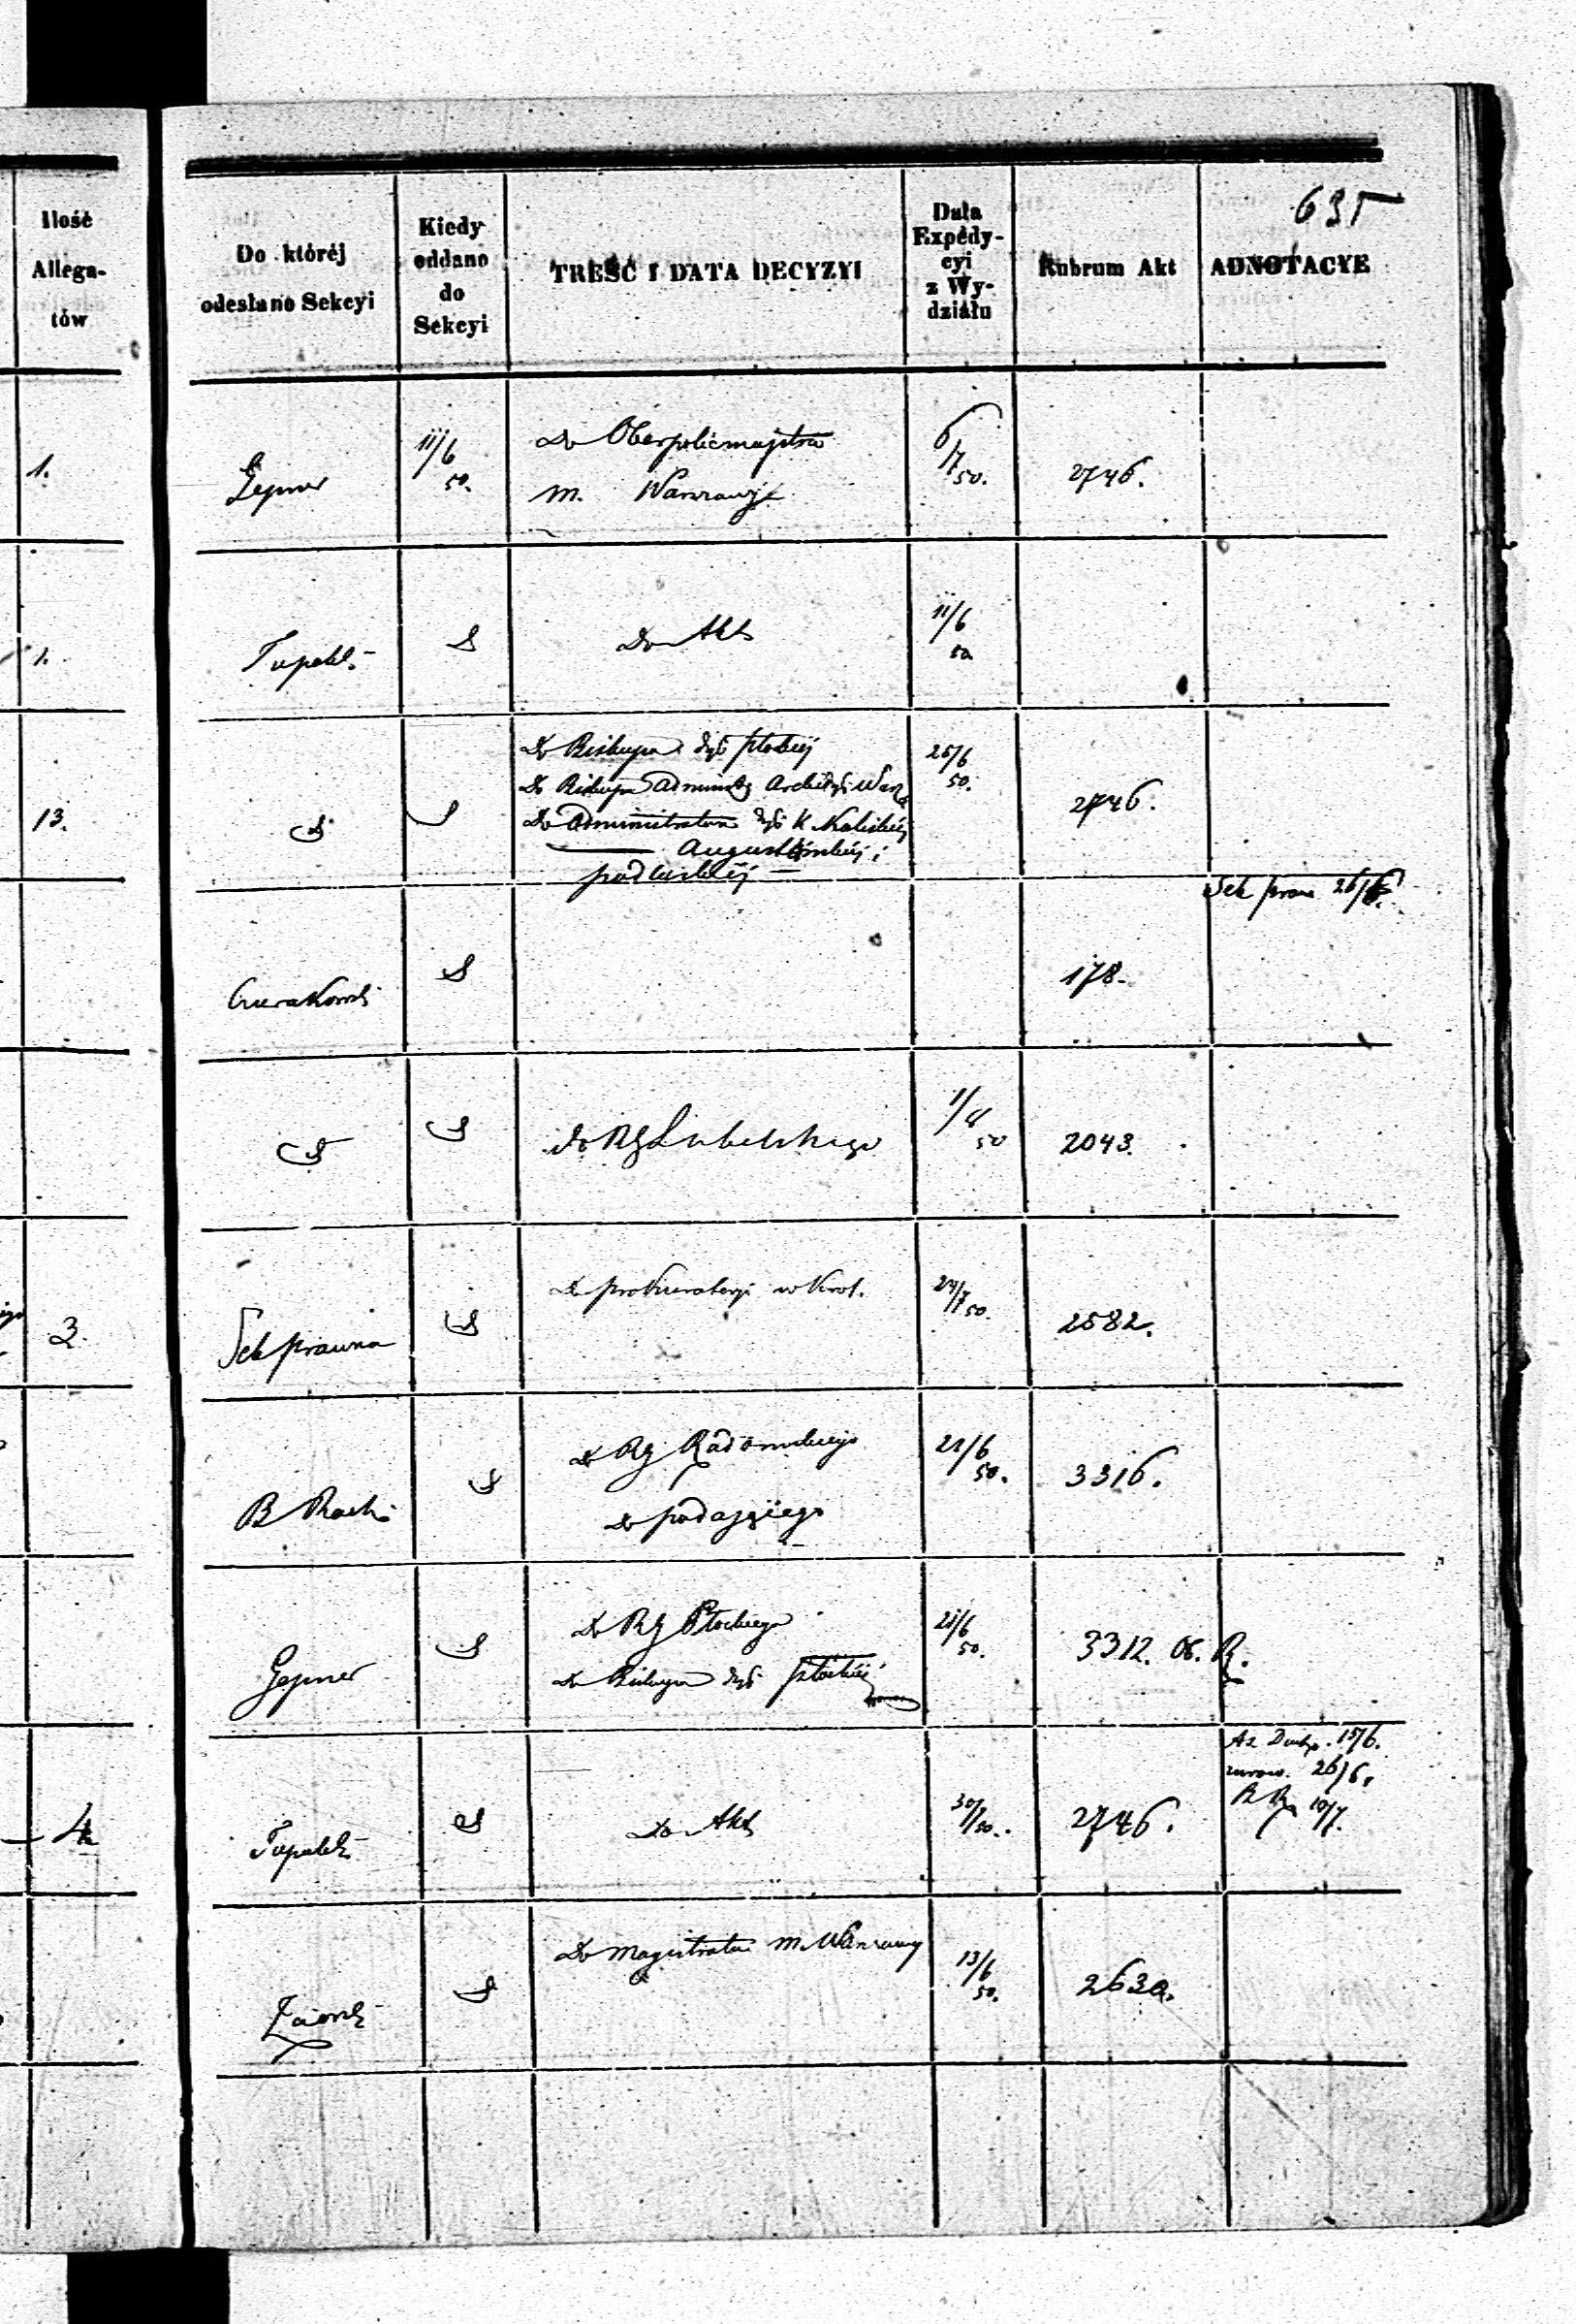 635
Ilość
Allega-
tów
Do któréj
odesłano Sekcyi
Kiedy
oddano
do
Sekcyi
TREŚĆ I DATA DECYZYI
Data
Expédy-
cyi
z Wy-
działu
Rubrum Akt
ADNOTACYE
1.
Gepner
11/6
50.
Do Oberpolicmajstra
m. Warszawy
6/7
50.
2746.
1.
Do Akt
11/6
50
13.
Do Biskupa dyć płockiéj
Do Biskupa Administ Archidyć Warsz
Do Administratora dyć K Kaliskiéj
Augustowskiéj i
podlaskiéj —
25/6
50.
2746.
Sek praw 26/6.
178.
do RG Lubelskiego
50
2043.
3.
Sek prawna
Do prokuratoryi w Król.
50.
2582.
Do RG Radomskiego
do podającego
21/6
50.
3316.
Gepner
Do RG Płockiego
Do Biskupa dyć płockiéj
21/6
50.
3312.
4
Do Akt
2746.
15/6.
26/6.
10/7.
Do Magistratu m. Warszawy
13/6
50.
2630.